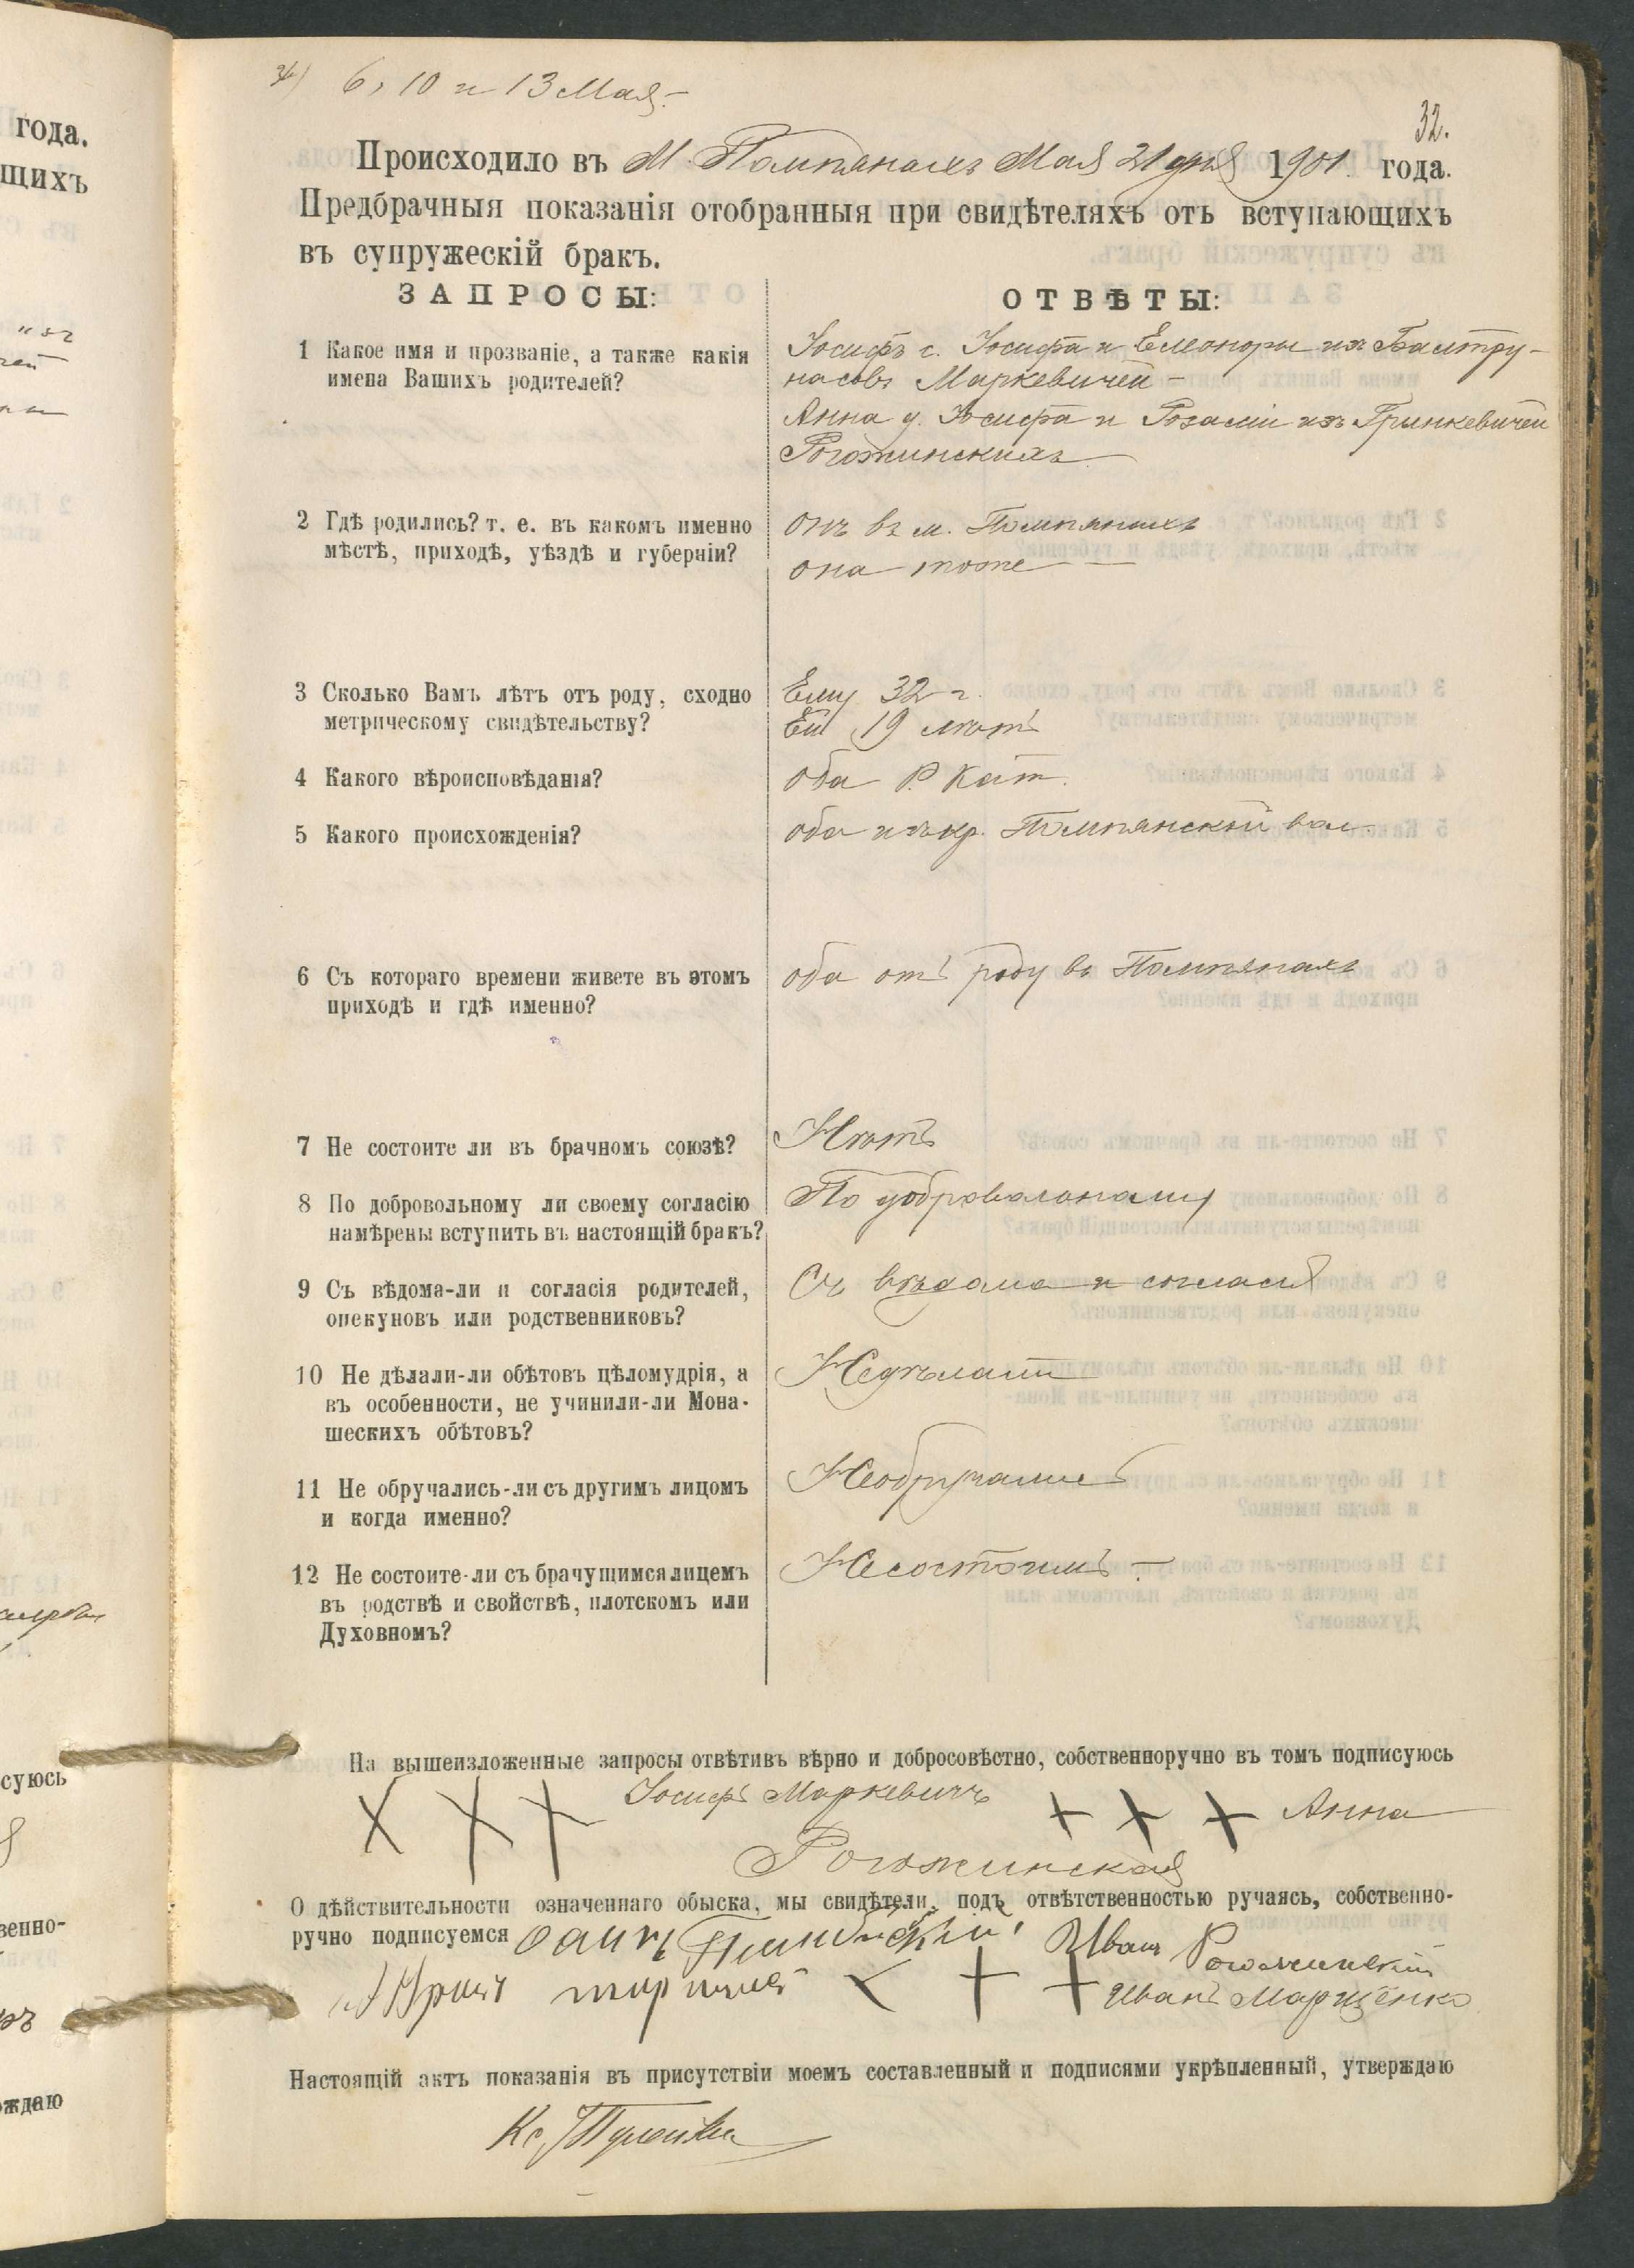 6, 10 и 13 Мая.-
32.
Происходило въ М. Помпянахъ Мая 21 дня 1901 года.
Предбрачныя показанія отобранныя при свидѣтеляхъ отъ вступающихъ
въ супружескій бракъ.
ЗАПРОСЫ:
ОТВѢТЫ:
1 Какое имя и прозваніе, а также какія
имена Вашихъ родителей?
Іосифъ с. Іосифа и Елеоноры изъ Балтру-
насовъ Маркевичей -
Анна д. Іосифа и Розаліи изъ Гринкевичей
Рогожинскихъ
2 Гдѣ родились? т. е. въ какомъ именно
мѣстѣ, приходѣ, уѣздѣ и губерніи?
Онъ въ м. Помпянахъ
она тоже
3 Сколько Вамъ лѣтъ отъ роду, сходно
метрическому свидѣтельству?
Ему 32 г.
Ей 19 лѣтъ
4 Какого вѣроисповѣданія?
оба Р. Кат.
5 Какого происхожденія?
оба изъ кр. Помпянской вол.
6 Съ котораго времени живете въ этомъ
приходѣ и гдѣ именно?
оба отъ роду въ Помпянахъ
7 Не состоите ли въ брачномъ союзѣ?
Нѣтъ
8 По добровольному ли своему согласію
намѣрены вступить въ настоящій бракъ?
По добровольному
9 Съ вѣдома-ли и согласія родителей,
опекуновъ или родственниковъ?
Съ вѣдома и согласія
10 Не дѣлали-ли обѣтовъ цѣломудрія, а
въ особенности, не учинили-ли Мона-
шескихъ обѣтовъ?
Недѣлали
11 Не обручались-ли съ другимъ лицомъ
и когда именно?
Необручались
12 Не состоите-ли съ брачущимся лицемъ
въ родствѣ и свойствѣ, плотскомъ или
Духовномъ?
Несостоимъ -
На вышеизложенные запросы отвѣтивъ вѣрно и добросовѣстно, собственноручно въ томъ подписуюсь
X X X Іосифъ Маркевичъ + + + Анна
Рогожинская
О дѣйствительности означеннаго обыска, мы свидѣтели, подъ отвѣтственностью ручаясь, собственно-
ручно подписуемся Иванъ Рогожинскій
+ + Иванъ Марценко
Настоящій актъ показанія въ присутствіи моемъ составленный и подписями укрѣпленный, утверждаю
Кс.